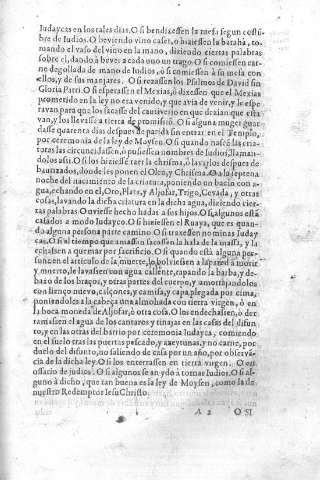 Iudaycas en los tales dias. O si bendixessen la mesa segun costū
bre de Iudios. O beviendo vino caser, o hiziessen la baraha, to-
mando el vaso del vino en la mano, diziendo ciertas palabras
sobre el, dando à bever à cada uno un trago. O si comiessen car-
ne degollada de mano de Iudios, ó si comiessen à su mesa con
ellos, y de sus manjares. O si rezassen los Psalmos de David sin
Gloria Patri. O si esperassen el Mexias, ó dixessen que el Mexias
prometido en la ley no era venido, y que avia de venir, y le espe
ravan para que los sacasse del cautiverio en que dezian que esta
van, y los llevasse a tierra de promissiō. O si alguna muger guar
dasse quarenta dias despues de parida sin entrar en el Templo,
por ceremonia de la ley de Moysen. O si quando nascē las cria-
turas las circuncidassen, ò pusiessen nombres de Iudios, llaman-
dolos assi. O si les hiziessē raer la chrisma, ò lavarlos despues de
baptizados, donde les ponen el Oleo, y Chrisma. O a la septena
noche del nascimiento de la criatura, poniendo un bacin con a
gua, echando en el, Oro, Plata, y Aljofar, Trigo, Cevada, y otras
cosas, lavando la dicha criatura en la dicha agua, diziendo cier-
tas palabras. O uviesse hecho hadas a sus hijos. O si algunos estā
casados a modo Iudayco. O si hiziessen el Ruaya, que es quan-
do alguna persona parte camino. O si traxessen nominas Iuday
cas. O si al tiempo que amassan sacassen la hala de la massa, y la
echassen a quemar por sacrificio. O si quando està alguna per-
sona en el articulo de la muerte, le bolviessen a la pared a morir
y muerto, le lavassen con agua caliente, rapando la barba, y de-
baxo de los braços, y otras partes del cuerpo, y amortajandolos
con lienço nuevo, calçones, y camisa, y capa plegada por cima,
poniendoles a la cabeça una almohada con tierra virgen, ò en
la boca moneda de Aljofar, ò otra cosa. O los endechassen, ò der
ramassen el agua de los cantaros y tinajas en las casas del difun-
to, y en las otras del barrio por ceremonia Iudayca, comiendo
en el suelo tras las puertas pescado, y azeytunas, y no carne, por
duelo del difunto, no saliendo de casa por un año, por observā-
cia de la dicha ley. O si los enterrassen en tierra virgen.
ossario de judios. O si algunos se an ydo à tornar Iudios. O si al-
guno à dicho, que tan buena es la ley de Moysen, como la de
nuestro Redemptor Iesu Christo.
A 2 O SI